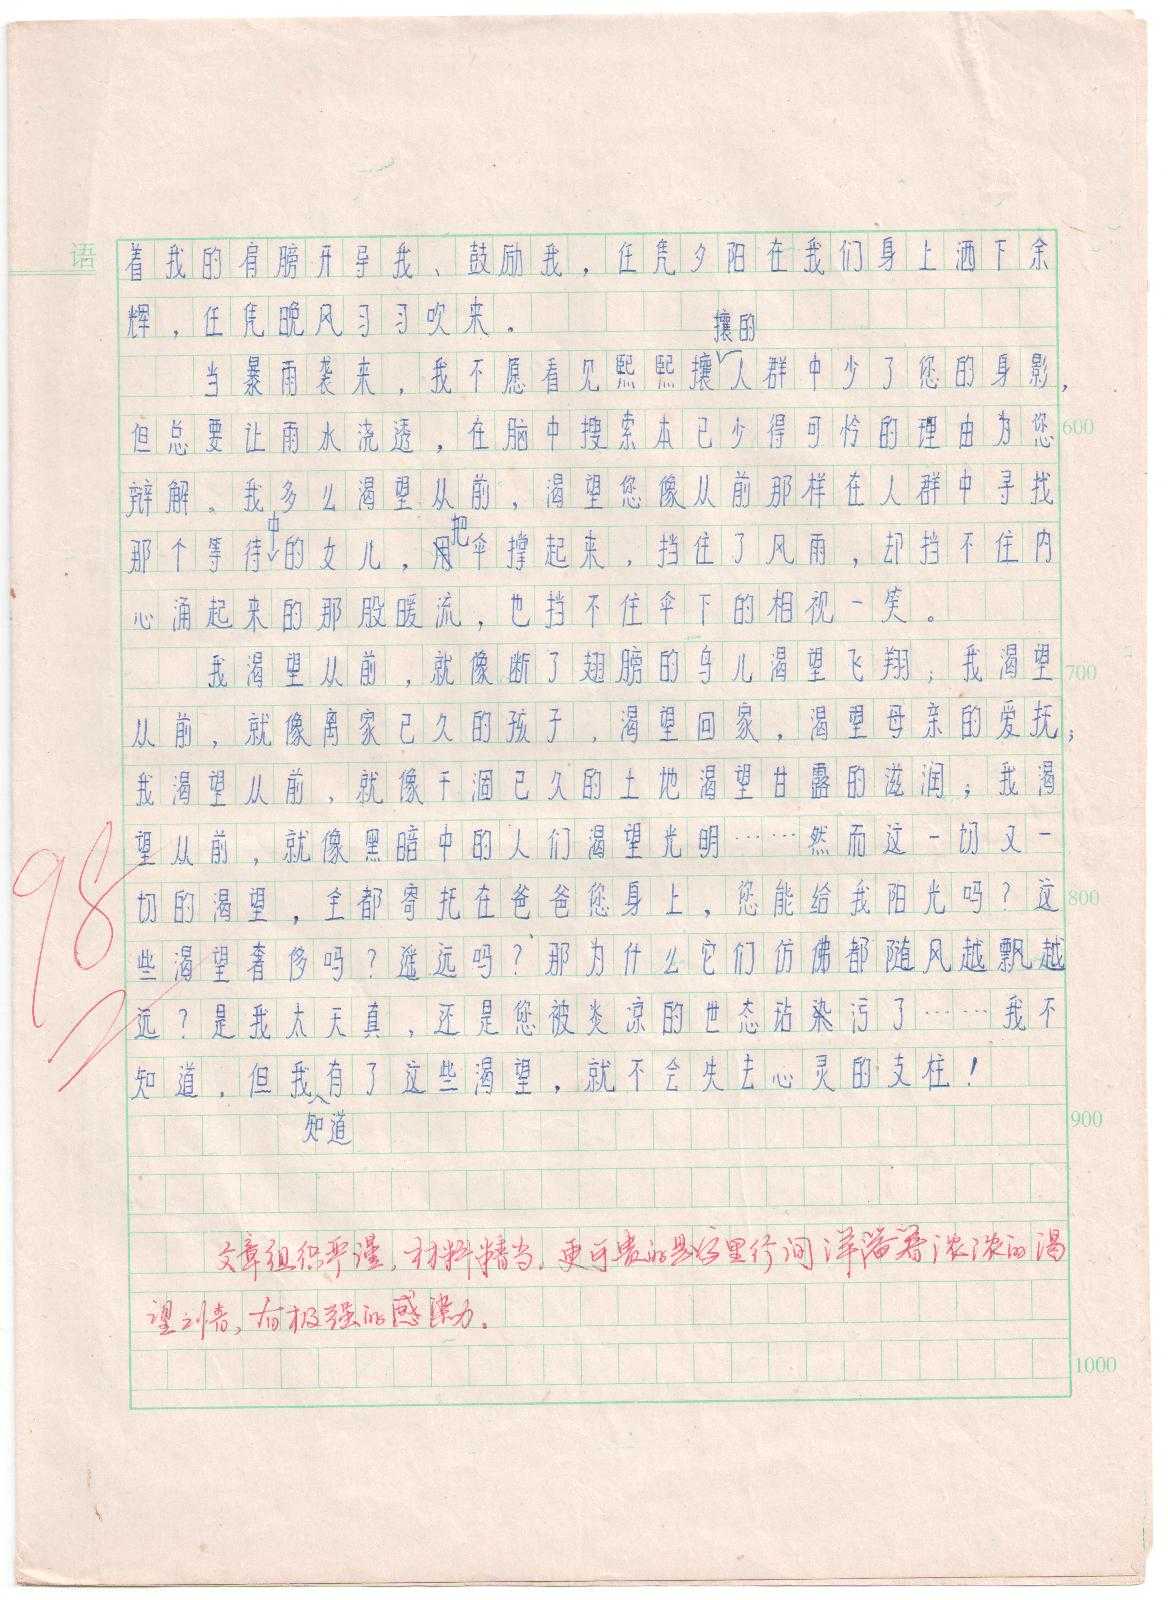 语
着我的肩膀开导我、鼓励我，任凭夕阳在我们身上洒下余
辉，任凭晚风习习吹来。
攘的
当暴雨袭来，我不愿看见熙熙攘人群中少了您的身影，
但总要让雨水浇透，在脑中搜索本已少得可怜的理由为您 600
辩解。我多么渴望从前，渴望您像从前那样在人群中寻找
中 把
那个等待的女儿，用伞撑起来，挡住了风雨，却挡不住内
心涌起来的那股暖流，也挡不住伞下的相视一笑。
我渴望从前，就像断了翅膀的鸟儿渴望飞翔；我渴望 700
从前，就像离家已久的孩子，渴望回家，渴望母亲的爱抚；
我渴望从前，就像干涸已久的土地渴望甘露的滋润；我渴
望从前，就像黑暗中的人们渴望光明……然而这一切又一
切的渴望，全都寄托在爸爸您身上，您能给我阳光吗？这 800
些渴望奢侈吗？遥远吗？那为什么它们仿佛都随风越飘越
远？是我太天真，还是您被炎凉的世态玷染污了……我不
知道，但我有了这些渴望，就不会失去心灵的支柱！
知道
900
98
文章组织严谨，材料精当，更可贵的是字里行间洋溢着浓浓的渴
望之情，有极强的感染力。
1000